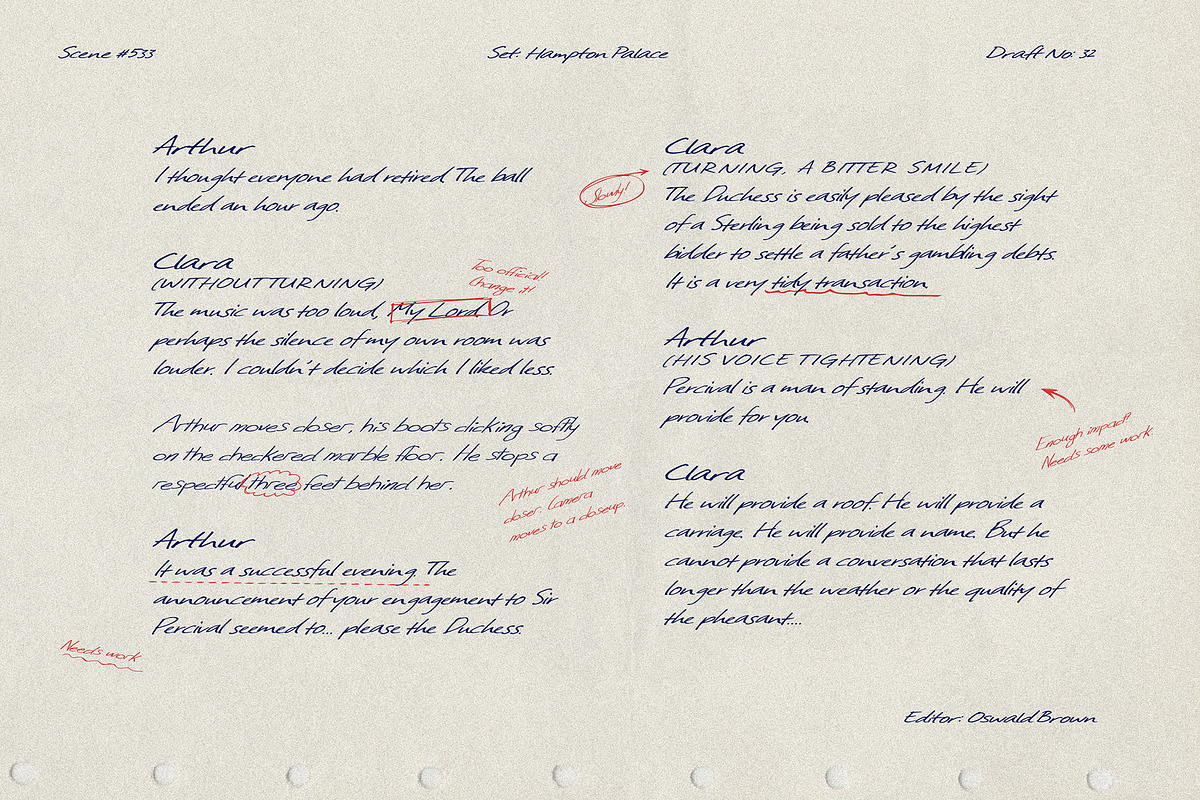 Scene #533
Set: Hampton Palace
Draft No: 32
Arthur
I thought everyone had retired. The ball
ended an hour ago.
Clara
(WITHOUT TURNING)
Too official!
Change it!
The music was too loud, My Lord. Or
perhaps the silence of my own room was
louder. I couldn't decide which I liked less.
Arthur moves closer, his boots clicking softly
on the checkered marble floor. He stops a
respectful three feet behind her.
Arthur should move
closer. Camera
moves to a closeup.
Arthur
It was a successful evening. The
announcement of your engagement to Sir
Percival seemed to... please the Duchess.
Needs work
Clara
(TURNING, A BITTER SMILE)
The Duchess is easily pleased by the sight
of a Sterling being sold to the highest
bidder to settle a father's gambling debts.
It is a very tidy transaction.
Arthur
(HIS VOICE TIGHTENING)
Percival is a man of standing. He will
provide for you.
Enough impact?
Needs some work.
Clara
He will provide a roof. He will provide a
carriage. He will provide a name. But he
cannot provide a conversation that lasts
longer than the weather or the quality of
the pheasant....
Editor: Oswald Brown